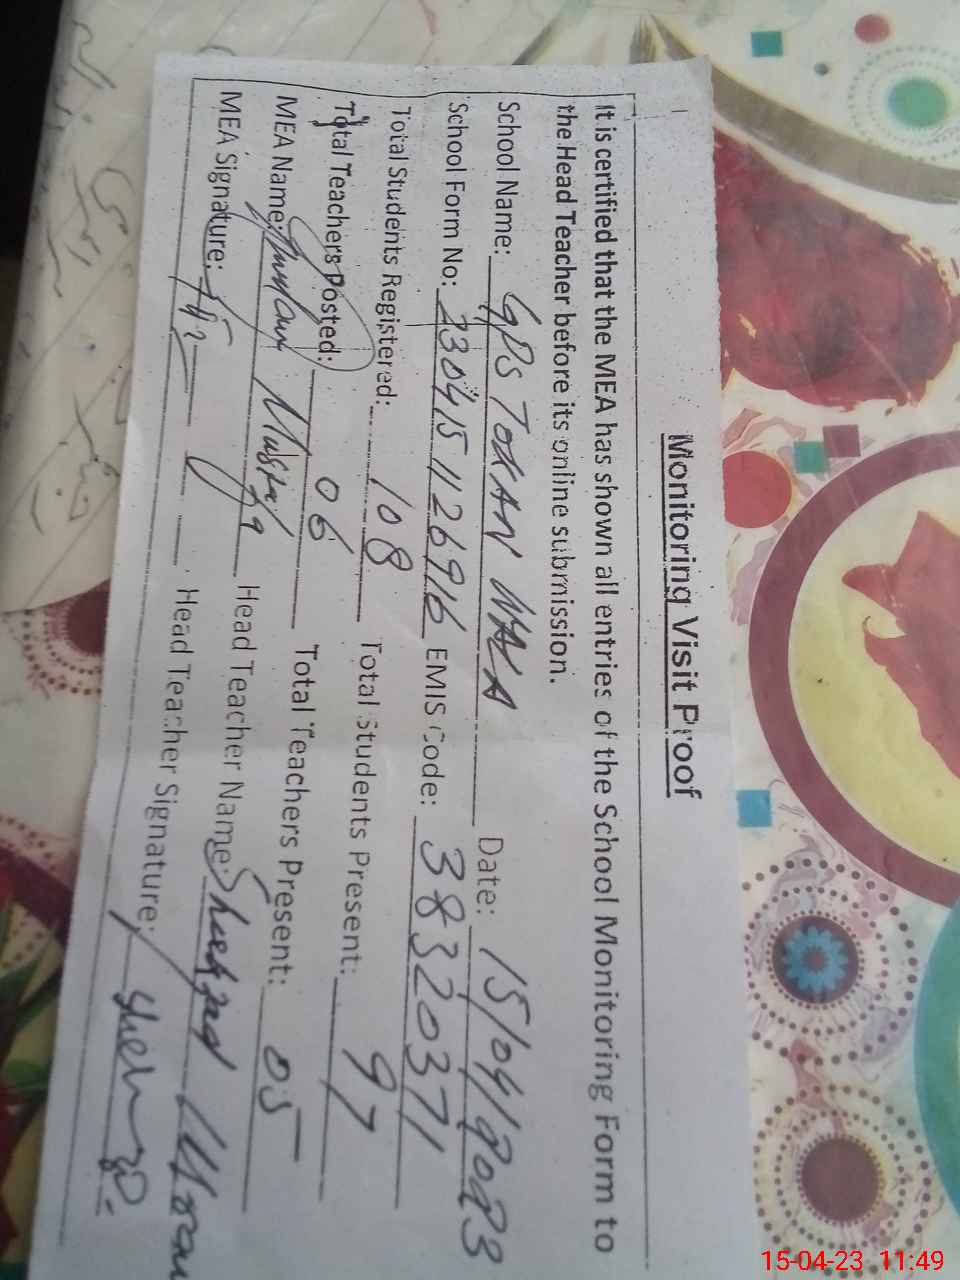 Monitoring Visit Proof
It is certified that the MEA has shown all entries of the School Monitoring Form to
the Head Teacher before its online submission.
School Name: GPS TOKAN WALA Date: 15/04/2023
School Form No: 2304151126916 EMIS Code: 38320371
Total Students Registered: 108 Total Students Present: 97
Total Teachers Posted: 06 Total Teachers Present: 05
MEA Name: Ghulam Mustafa Head Teacher Name: Shehzad Imran
MEA Signature: Head Teacher Signature:
15-04-23 11:49